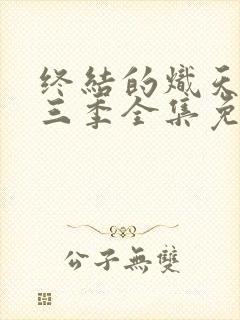 终結的熾天
三季全集免
公子無雙